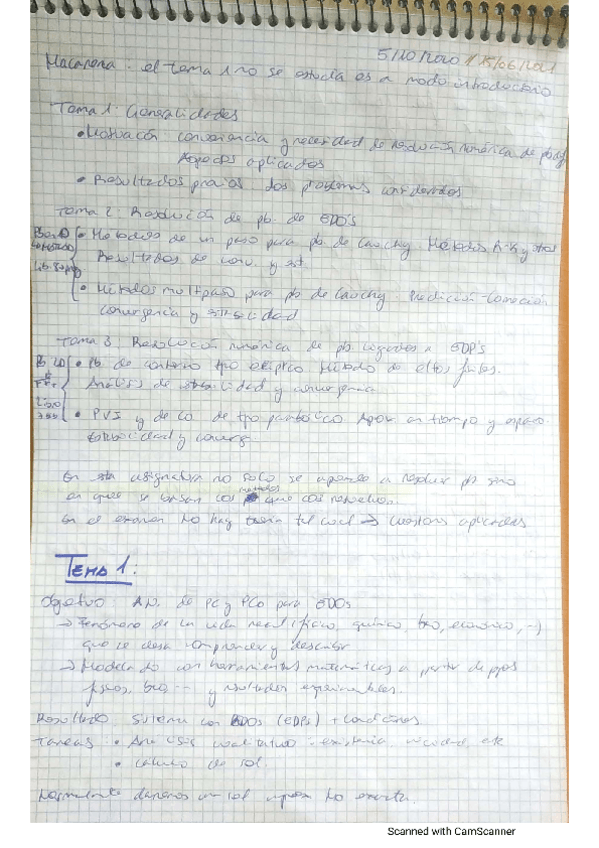 5/10/2020 // 15/06/2021
Macarena: el tema 1 no se estudia es a modo introductorio
Tema 1: Generalidades
• Motivación: conveniencia y necesidad de resolución numérica de pb
Aspectos aplicados
• Resultados previos: los problemas considerados
Tema 2: Resolución de pb. de EDO's
• Métodos de un paso para pb de Cauchy. Métodos R-K y otros
Resultados de conv. y est.
• Métodos multipaso para pb de Cauchy. Predicción-Corrección
convergencia y estabilidad
Tema 3: Resolución numérica de pb. ligados a EDP's
• Pb de contorno tipo elíptico. Método de eltos finitos.
Análisis de estabilidad y convergencia
• PVI y de CO de tipo parabólico. Aprox en tiempo y espacio.
Estabilidad y converg.
En esta asignatura no solo se aprende a resolver pb sino
en que se basan los métodos que los resuelven.
En el examen no hay teoría tal cual → cuestiones aplicadas
TEMA 1:
Objetivo: A.N. de PC y PCo para EDOs
→ Fenómeno de la vida real (físico, químico, bio, económico, ...)
que se desea comprender y describir
→ Modelado con herramientas matemáticas a partir de ppos
físicos, bio, ... y resultados experimentales.
Resultado: Sistema con EDOs (EDPs) + condiciones
Tareas: • Análisis cualitativo: existencia, unicidad, etc
• cálculo de sol.
Normalmente daremos un sol aprox no exacta.
Scanned with CamScanner